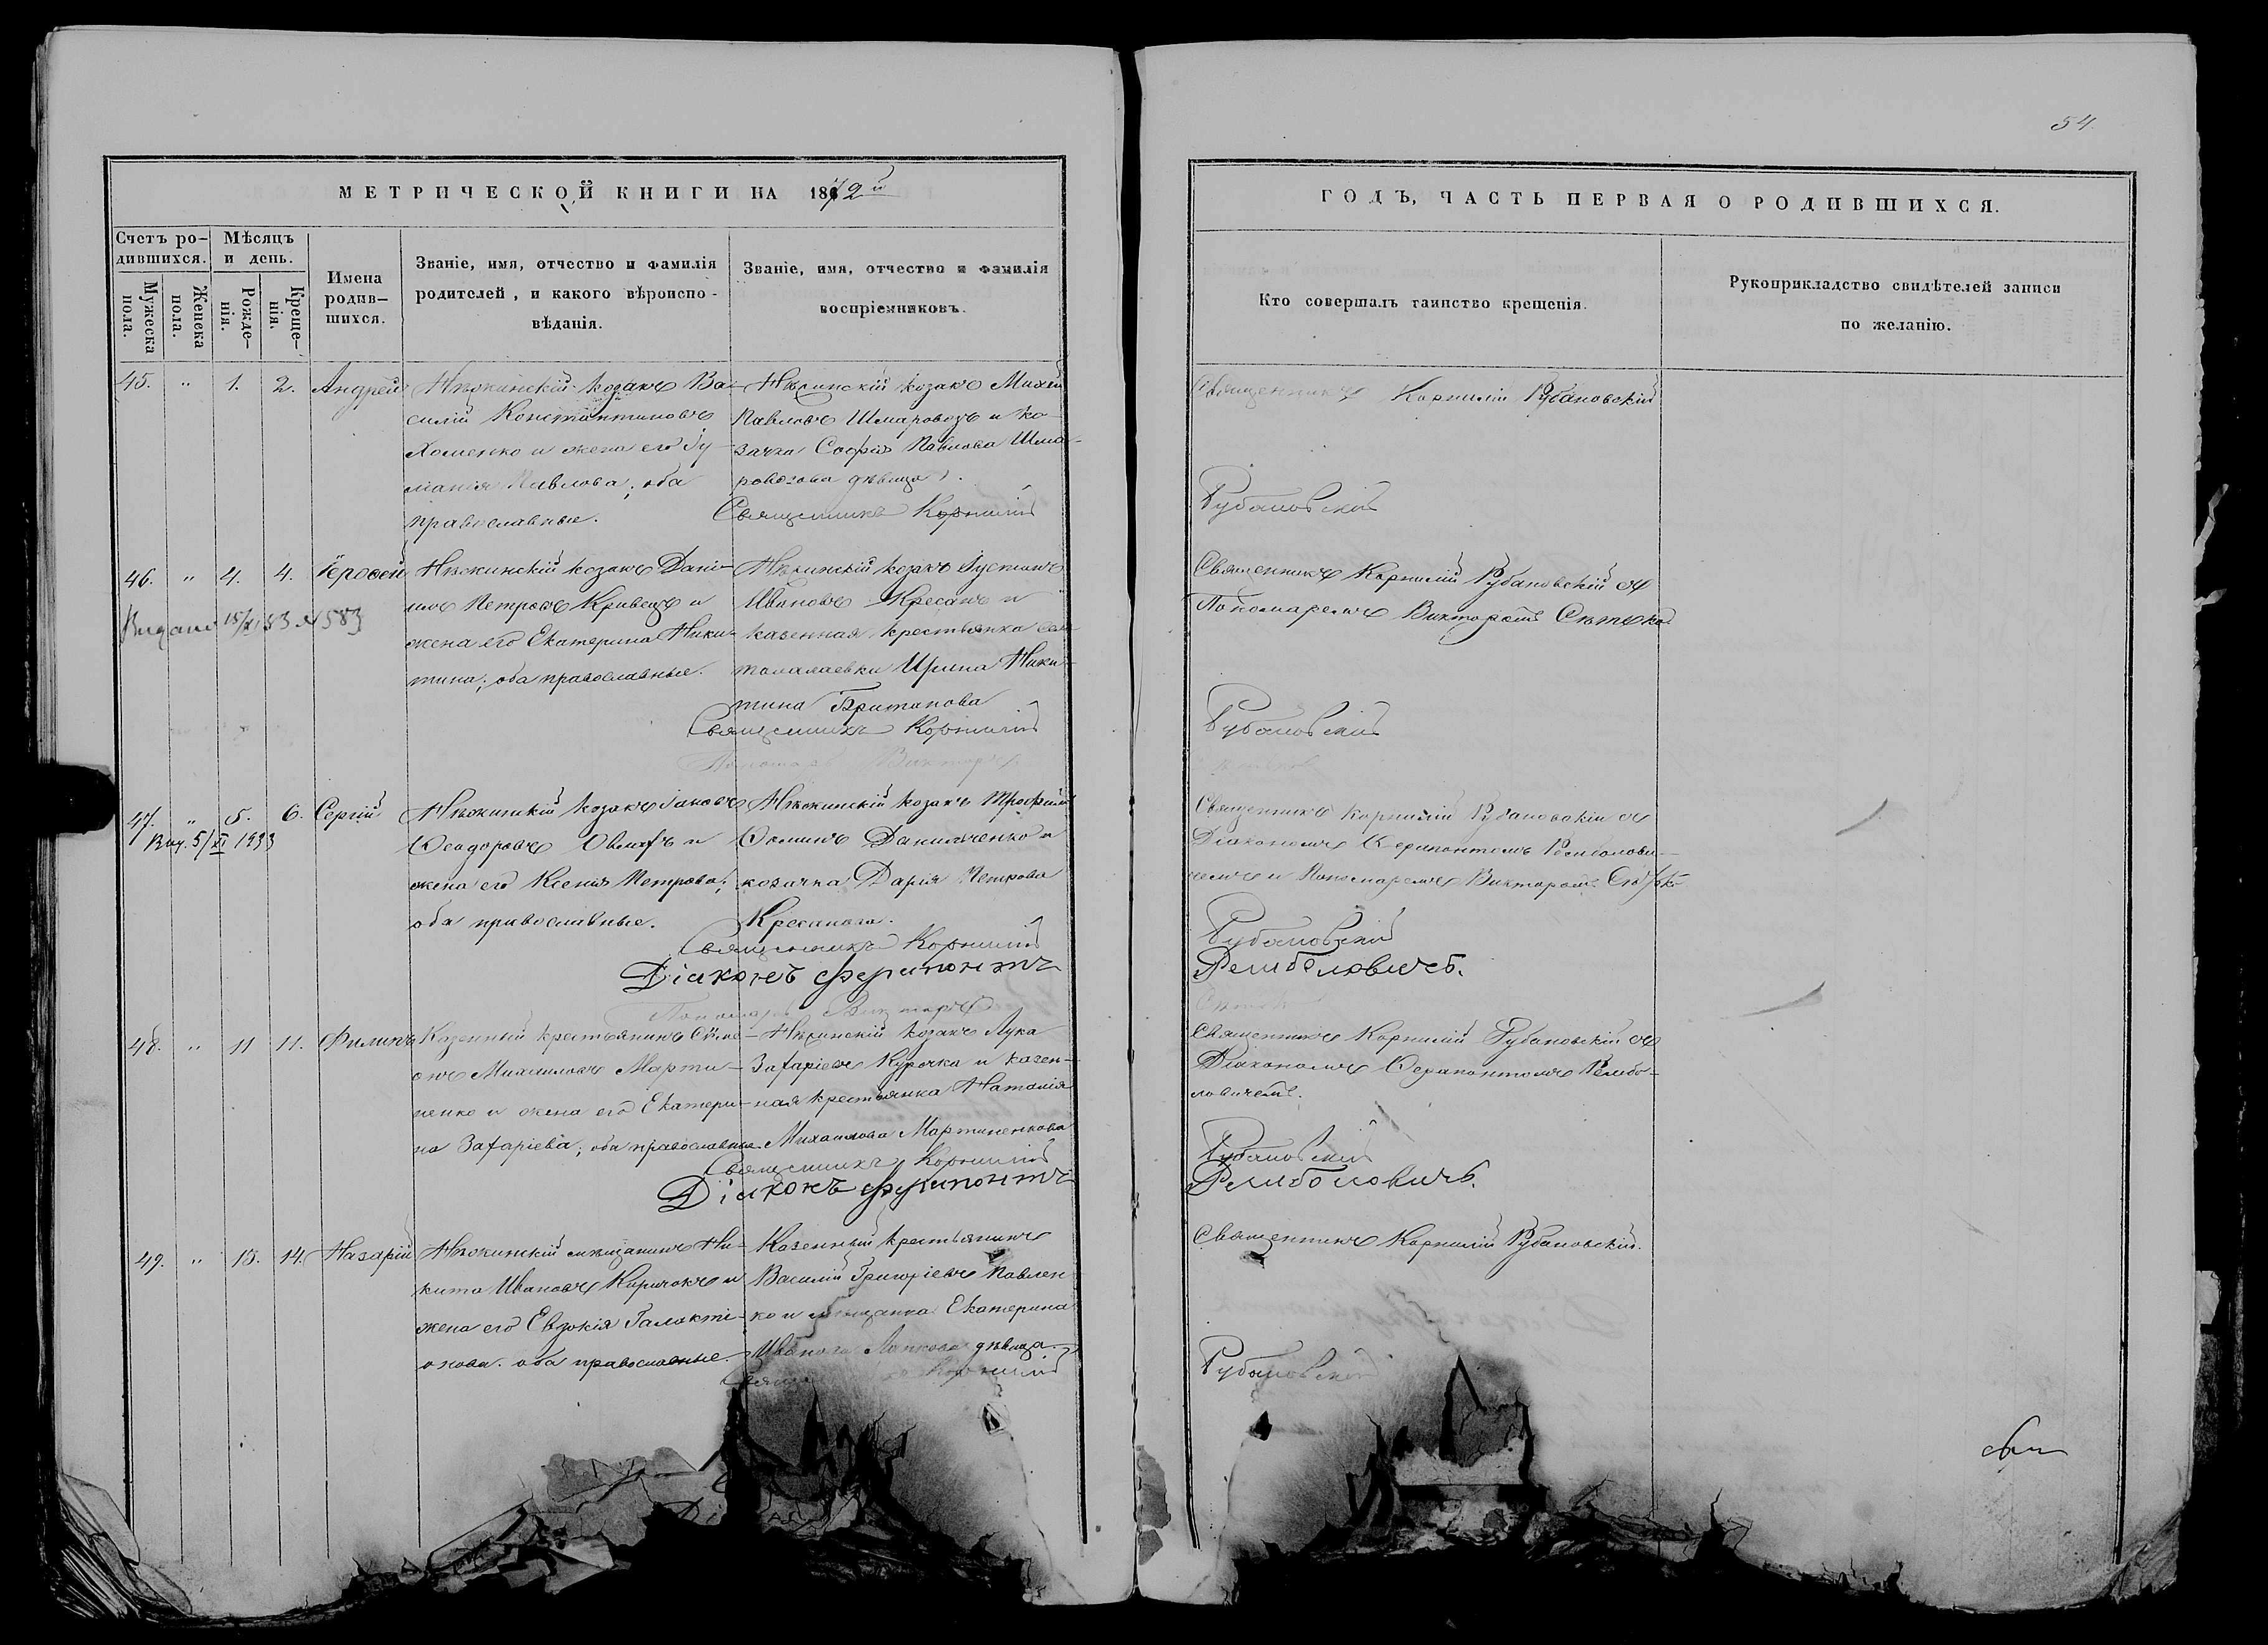 54.
МЕТРИЧЕСКОЙ КНИГИ НА 1872й
ГОДЪ, ЧАСТЬ ПЕРВАЯ О РОДИВШИХСЯ.
Счетъ ро-
дившихся.
Мужеска пола.
Женска пола.
Мѣсяцъ
и день.
Рожде-
нія.
Креще-
нія.
Имена
родив-
шихся.
Званіе, имя, отчество и фамилія
родителей, и какого вѣроиспо-
вѣданія.
Званіе, имя, отчество и фамилія
воспріемниковъ.
Кто совершалъ таинство крещенія.
Рукоприкладство свидѣтелей записи
по желанію.
45. " 1. 2. Андрей
Нѣжинскій козакъ Ва-
силій Константиновъ
Хоменко и жена его
Павлова; оба
православные.
Нѣжинскій козакъ Михей
Павловъ Шмаровозъ и ко-
зачка Софія Павлова Шма-
ровозова дѣвица.
Священникъ Корнилій
Священникъ Корнилій Рубановскій
Рубановскій
46. " 4. 4. Іеровей
18/XI 33 N 583
Нѣжинскій козакъ Дані-
илъ Петровъ Кривецъ и
жена его Екатерина Ники-
тина; оба православные.
Нѣжинскій козакъ Іустинъ
Ивановъ Кресанъ и
казенная крестьянка
Ирина Ники-
тина Британова
Священникъ Корнилій
Пономарь Викторъ
Священникъ Корнилій Рубановскій съ
Пономаремъ Викторомъ
Рубановскій
47. " 5. 6. Сергій
Выд. 5/XI 1933
Нѣжинскій козакъ
Ѳеодоровъ и
жена его Ксенія Петрова;
оба православные.
Нѣжинскій козакъ Трофимъ
Ѳоминъ Данильченко и
козачка Дарія Петрова
Кресанова.
Священникъ Корнилій
Діаконъ Ферапонтъ
Пономарь Викторъ
Священникъ Корнилій Рубановскій съ
Діакономъ Ѳерапонтомъ Ремболови-
чемъ и Пономаремъ Викторомъ
Рубановскій
Ремболовичъ.
48. " 11 11. Филипъ
Казенный крестьянинъ Сѷме-
онъ Михаиловъ Марти-
ненко и жена его Екатери-
на Захаріева; оба православные.
Нѣжинскій козакъ Лука
Захаріевъ Курочка и казен-
ная крестьянка Наталія
Михаилова Мартиненкова
Священникъ Корнилій
Діаконъ Ферапонтъ
Священникъ Корнилій Рубановскій съ
Діакономъ Ѳерапонтомъ Рембо-
ловичемъ.
Рубановскій
Ремболовичъ.
49. " 13. 14. Назарій
Нѣжинскій мѣщанинъ Ни-
кита Ивановъ и
жена его Евдокія Галакті-
онова. оба православные.
Казенный крестьянинъ
Василій Григоріевъ Павлен-
ко и мѣщанка Екатерина
дѣвица.
Корнилій
Священникъ Корнилій Рубановскій.
Рубановскій